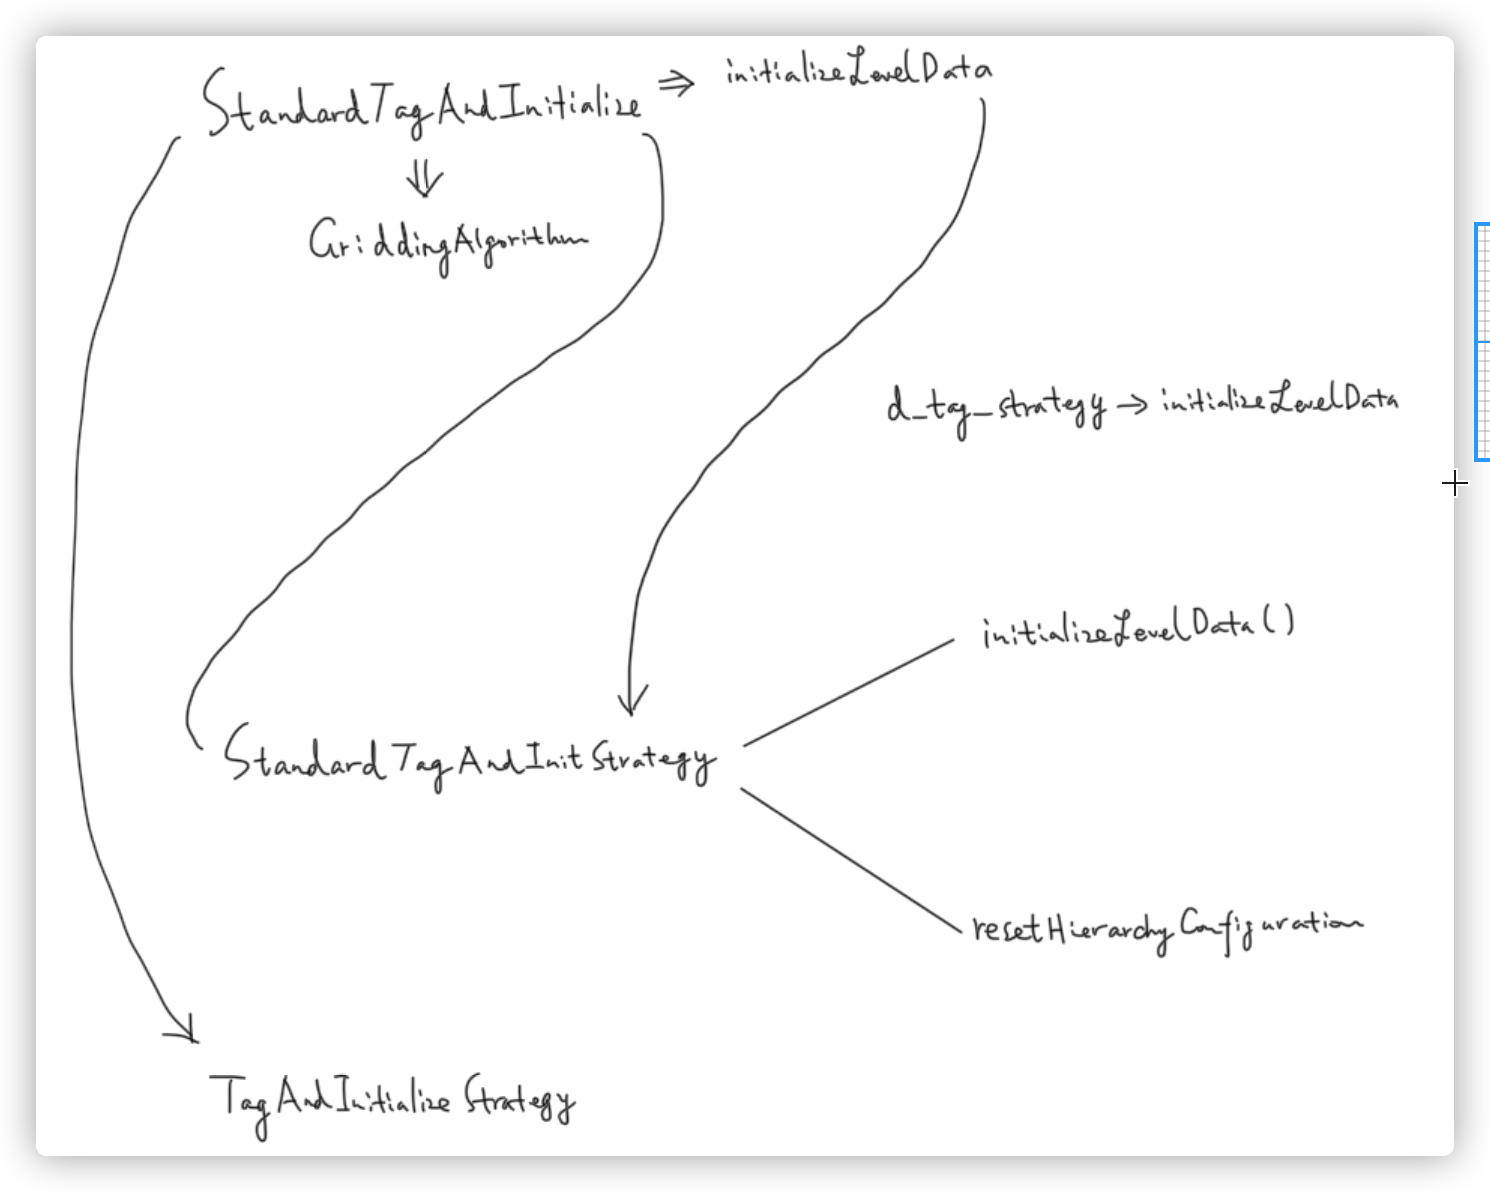 StandardTagAndInitialize ⇒ initializeLevelData
⇓
GriddingAlgorithm
d_tag_strategy → initializeLevelData
initializeLevelData()
StandardTagAndInitStrategy
resetHierarchyConfiguration
TagAndInitializeStrategy